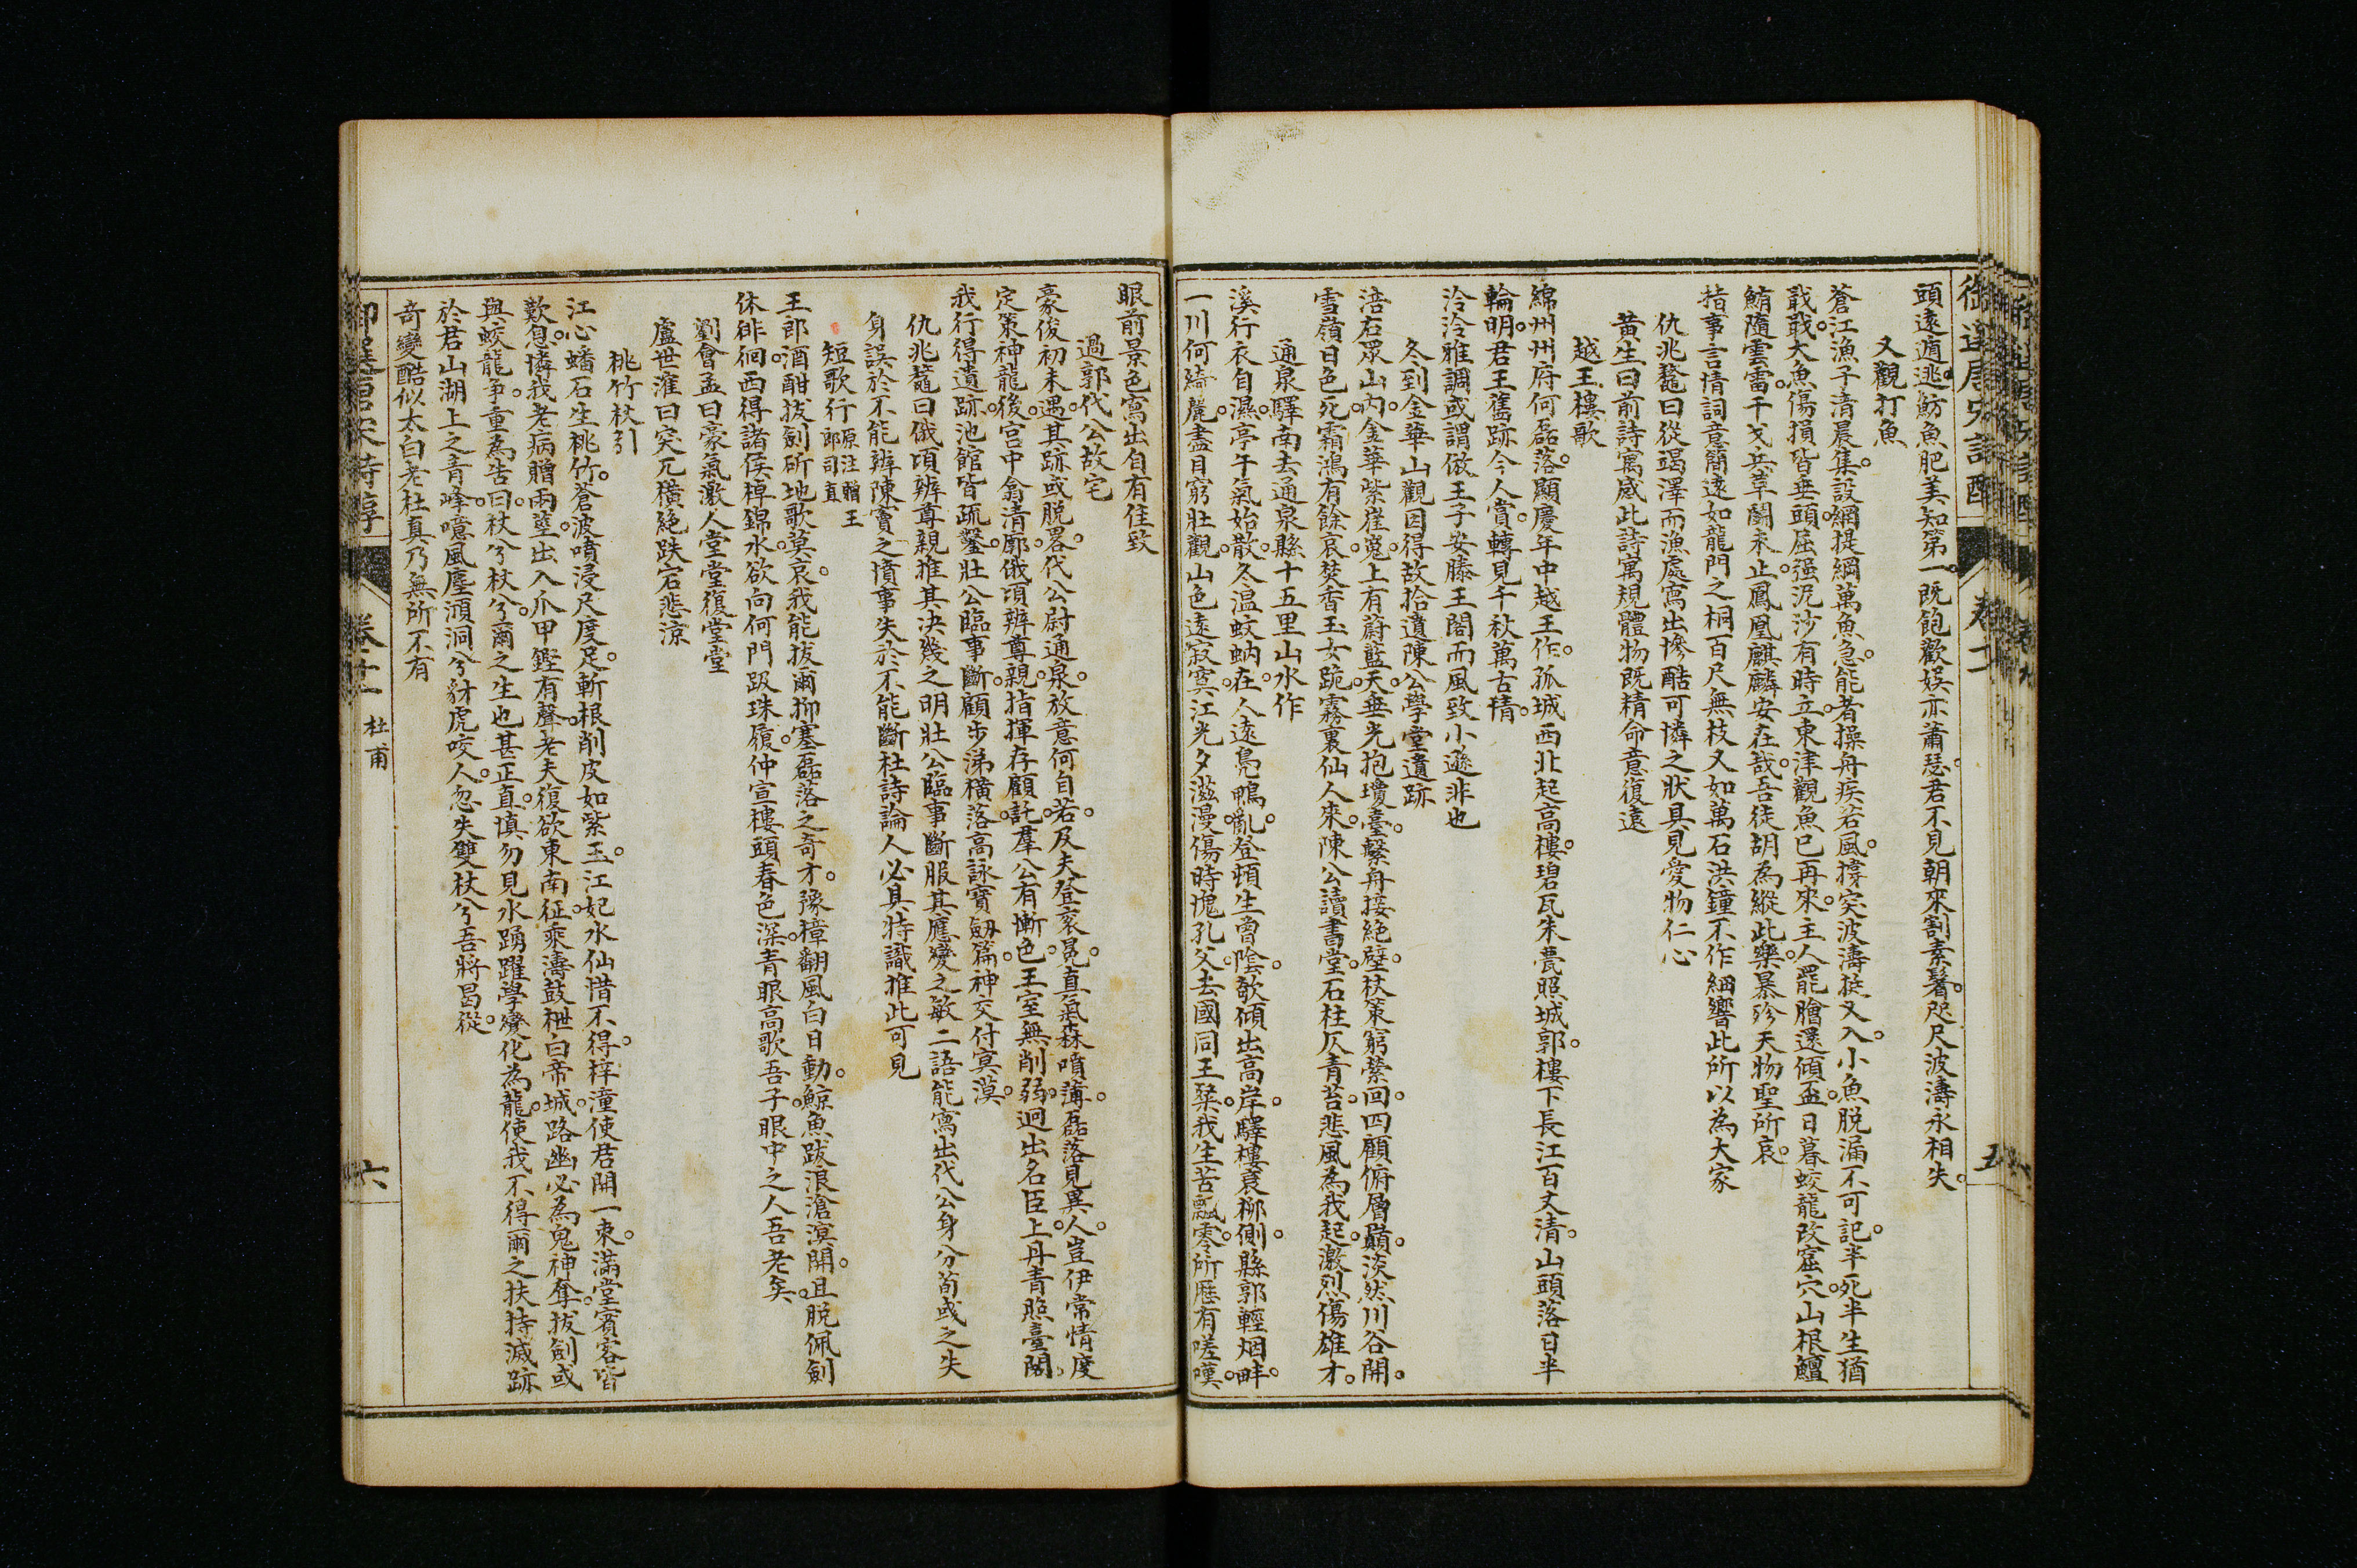 頭遠遁逃魴魚肥美知第一既飽歡娱亦蕭瑟君不見朝來割素鬐咫尺波濤永相失
又觀打魚
蒼江漁子清晨集設網提綱萬魚急能者操舟疾若風撐突波濤挺叉入小魚脱漏不可記半死半生猶
戢戢大魚傷損皆垂頭屈强泥沙有時立東津觀魚已再來主人罷膾還傾盃日暮蛟龍改窟穴山根鱣
鮪隨雲雷干戈兵革鬭未止鳳凰麒麟安在哉吾徒胡為縱此樂暴殄天物聖所哀
指事言情詞意簡遠如龍門之桐百尺無枝又如萬石洪鐘不作細響此所以為大家
仇兆鼇曰從竭澤而漁處寫出慘酷可憐之狀具見愛物仁心
黄生曰前詩寓感此詩寓規體物既精命意復遠
越王樓歌
綿州州府何磊落顯慶年中越王作孤城西北起高樓碧瓦朱甍照城郭樓下長江百丈清山頭落日半
輪明君王舊跡今人賞轉見千秋萬古情
泠泠雅調或謂倣王子安滕王閣而風致小遜非也
冬到金華山觀因得故拾遺陳公學堂遺跡
涪右眾山內金華紫崔嵬上有蔚藍天垂光抱瓊臺繫舟接絕壁杖策窮縈回四顧俯層巔淡然川谷開
雪嶺日色死霜鴻有餘哀焚香玉女跪霧裏仙人來陳公讀書堂石柱仄青苔悲風為我起激烈傷雄才
通泉驛南去通泉縣十五里山水作
溪行衣自濕亭午氣始散冬温蚊蚋在人遠鳧鴨亂登頓生曾陰欹傾出高岸驛樓衰柳側縣郭輕烟畔
一川何綺麗盡日窮壯觀山色遠寂寞江光夕滋漫傷時愧孔父去國同王粲我生苦飄零所歷有嗟嘆
御選唐宋詩醇
卷十一
五
眼前景色寫出自有佳致
過郭代公故宅
豪俊初未遇其跡或脱畧代公尉通泉放意何自若及夫登衮冕直氣森噴薄磊落見異人豈伊常情度
定策神龍後宮中翕清廓俄頃辨尊親指揮存顧託羣公有慚色王室無削弱迥出名臣上丹青照臺閣
我行得遺跡池館皆疏鑿壯公臨事斷顧步涕橫落高詠寶劒篇神交付冥漠
仇兆鼇曰俄頃辨尊親推其决幾之明壯公臨事斷服其應變之敏二語能寫出代公身分荀彧之失
身誤於不能辨陳竇之憤事失於不能斷杜詩論人必具特識推此可見
短歌行原注贈王郎司直
王郎酒酣拔劍斫地歌莫哀我能拔爾抑塞磊落之奇才豫樟翻風白日動鯨魚跋浪滄溟開且脱佩劍
休徘徊西得諸侯棹錦水欲向何門趿珠履仲宣樓頭春色深青眼高歌吾子眼中之人吾老矣
劉會孟曰豪氣激人堂堂復堂堂
盧世㴶曰突兀橫絕跌宕悲涼
桃竹杖引
江心蟠石生桃竹蒼波噴浸尺度足斬根削皮如紫玉江妃水仙惜不得梓潼使君開一束滿堂賓客皆
歎息憐我老病贈兩莖出入爪甲鏗有聲老夫復欲東南征乘濤鼓枻白帝城路幽必為鬼神奪拔劍或
與蛟龍爭重為告曰杖兮杖兮爾之生也甚正直慎勿見水踴躍學變化為龍使我不得爾之扶持滅跡
於君山湖上之青峰噫風塵澒洞兮豺虎咬人忽失雙杖兮吾將曷從
奇變酷似太白老杜真乃無所不有
御選唐宋詩醇
卷十一
杜甫
六